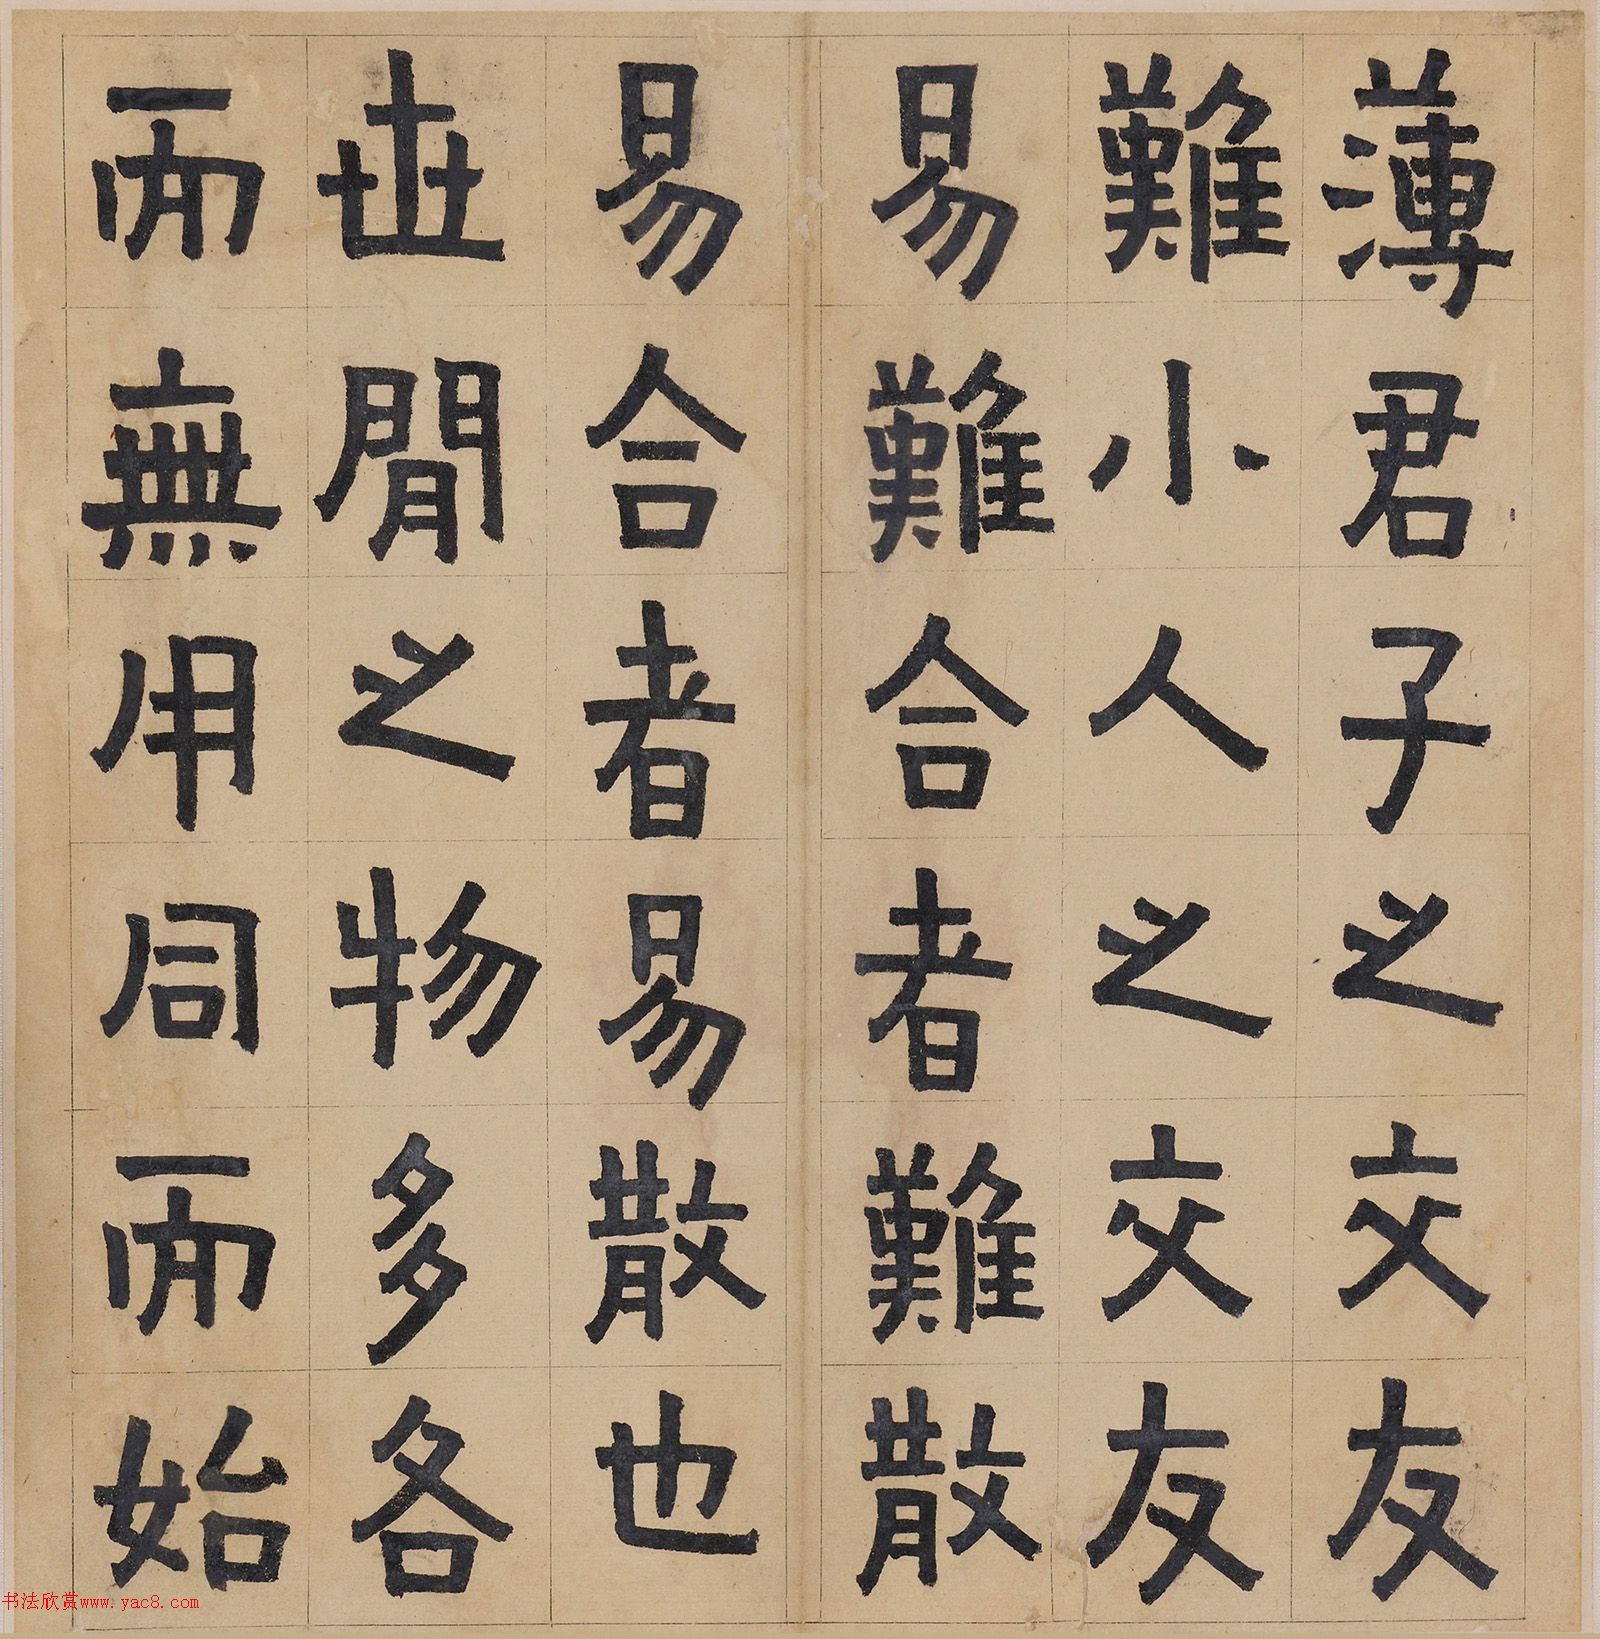 薄君子之交友
難小人之交友
易難合者難散
易合者易散也
世間之物多各
而無用同而始
书法欣赏www.yac8.com